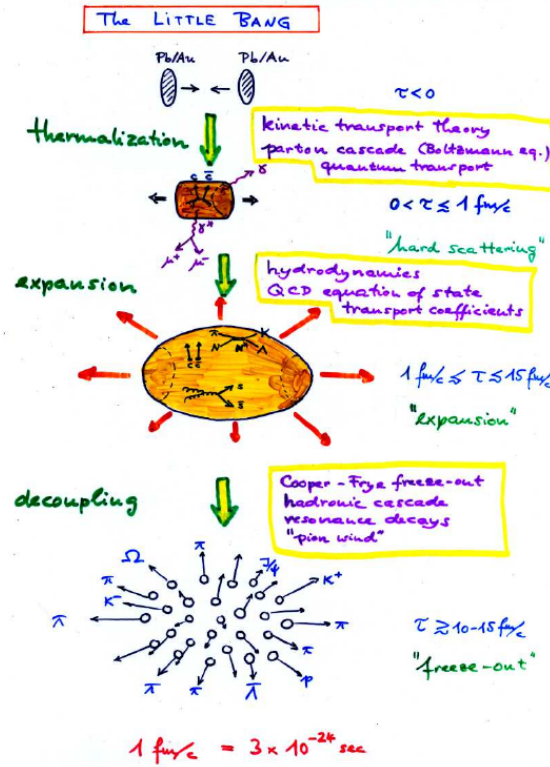 The LITTLE BANG
Pb/Au Pb/Au
τ<0
thermalization
kinetic transport theory
parton cascade (Boltzmann eq.)
quantum transport
c c̄ γ
γ*
μ+ μ-
0 < τ ≲ 1 fm/c
"hard scattering"
expansion
hydrodynamics
QCD equation of state
transport coefficients
π K
N N* Λ
c c̄
s
s̄
1 fm/c ≲ τ ≲ 15 fm/c
"expansion"
decoupling
Cooper-Frye freeze-out
hadronic cascade
resonance decays
"pion wind"
Ω π J/ψ
π K+
K-
π π
τ ≳ 10-15 fm/c
π
"freeze-out"
π π Λ̄ p
1 fm/c = 3 × 10^-24 sec